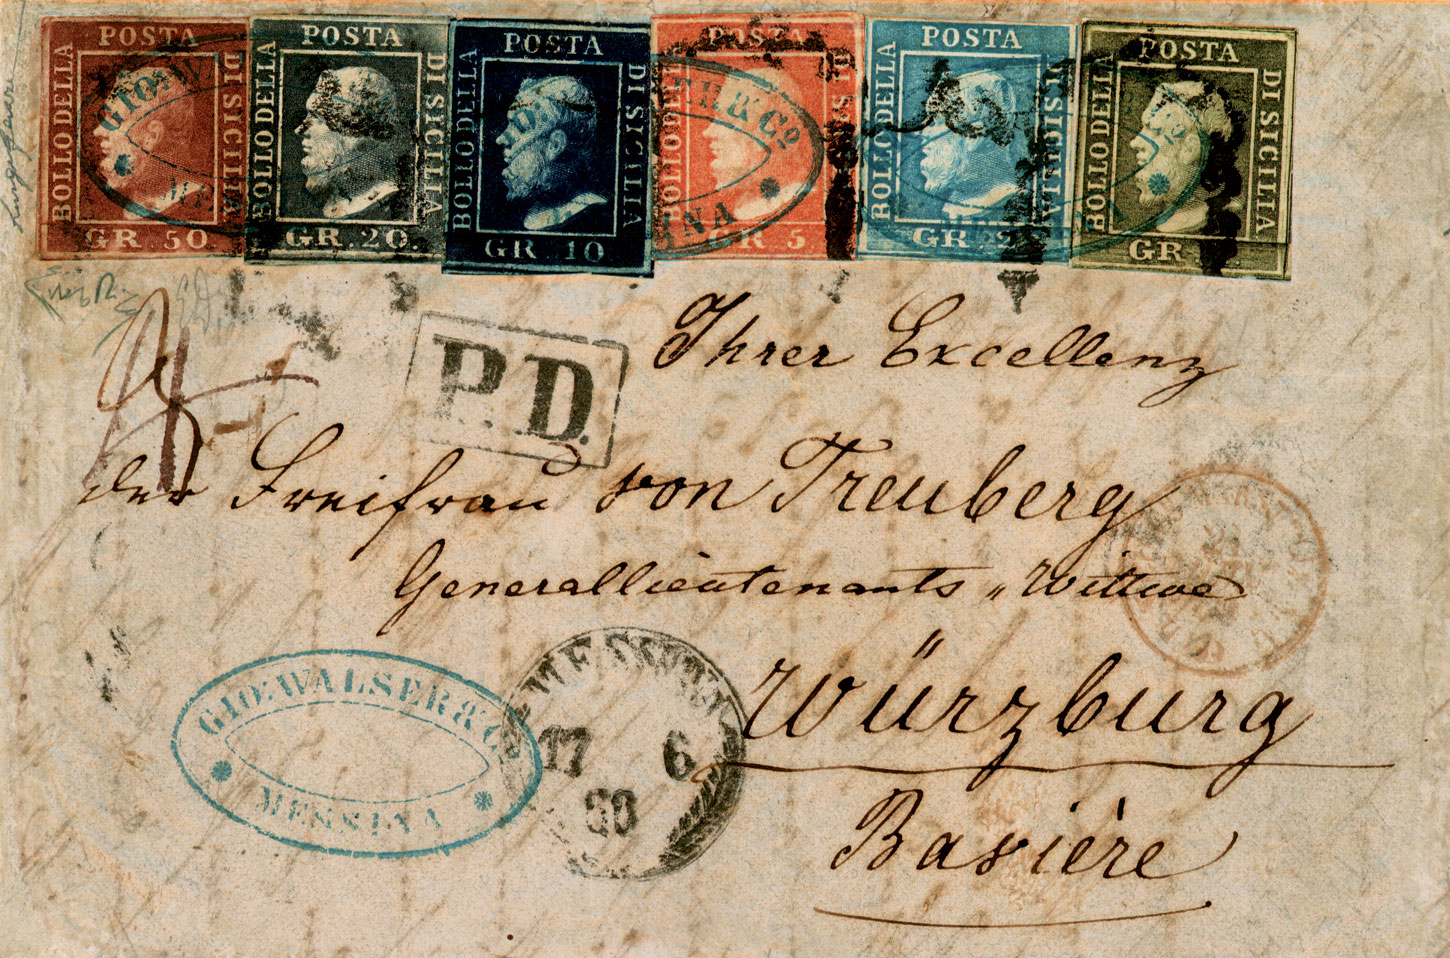 POSTA
BOLLO DELLA
DI SICILIA
GR. 50.
POSTA
BOLLO DELLA
DI SICILIA
GR. 20.
POSTA
BOLLO DELLA
DI SICILIA
GR. 10
POSTA
BOLLO DELLA
DI SICILIA
GR 5
POSTA
BOLLO DELLA
DI SICILIA
GR. 2
POSTA
BOLLO DELLA
DI SICILIA
GR
P.D.
Ihrer Excellenz
der Freifrau von Treuberg
Generallieutenants „Wittwe
Würzburg
Bavière
GIO: WALSER & Cº
MESSINA
MESSINA
17 6
60